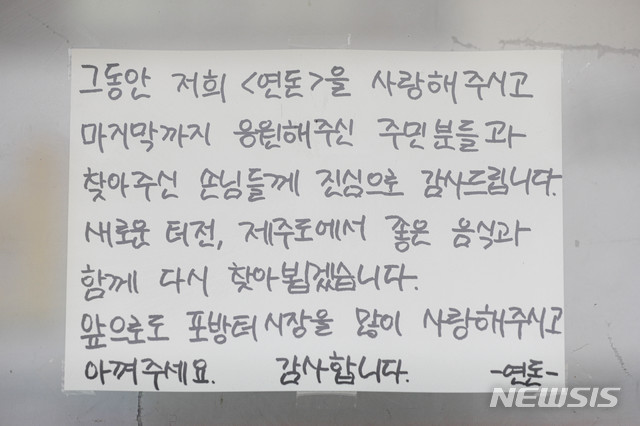 그동안 저희 <연돈>을 사랑해주시고
마지막까지 응원해주신 주민분들과
찾아주신 손님들께 진심으로 감사드립니다.
새로운 터전, 제주도에서 좋은 음식과
함께 다시 찾아뵙겠습니다.
앞으로도 포방터시장을 많이 사랑해주시고
아껴주세요. 감사합니다. -연돈-
NEWSIS